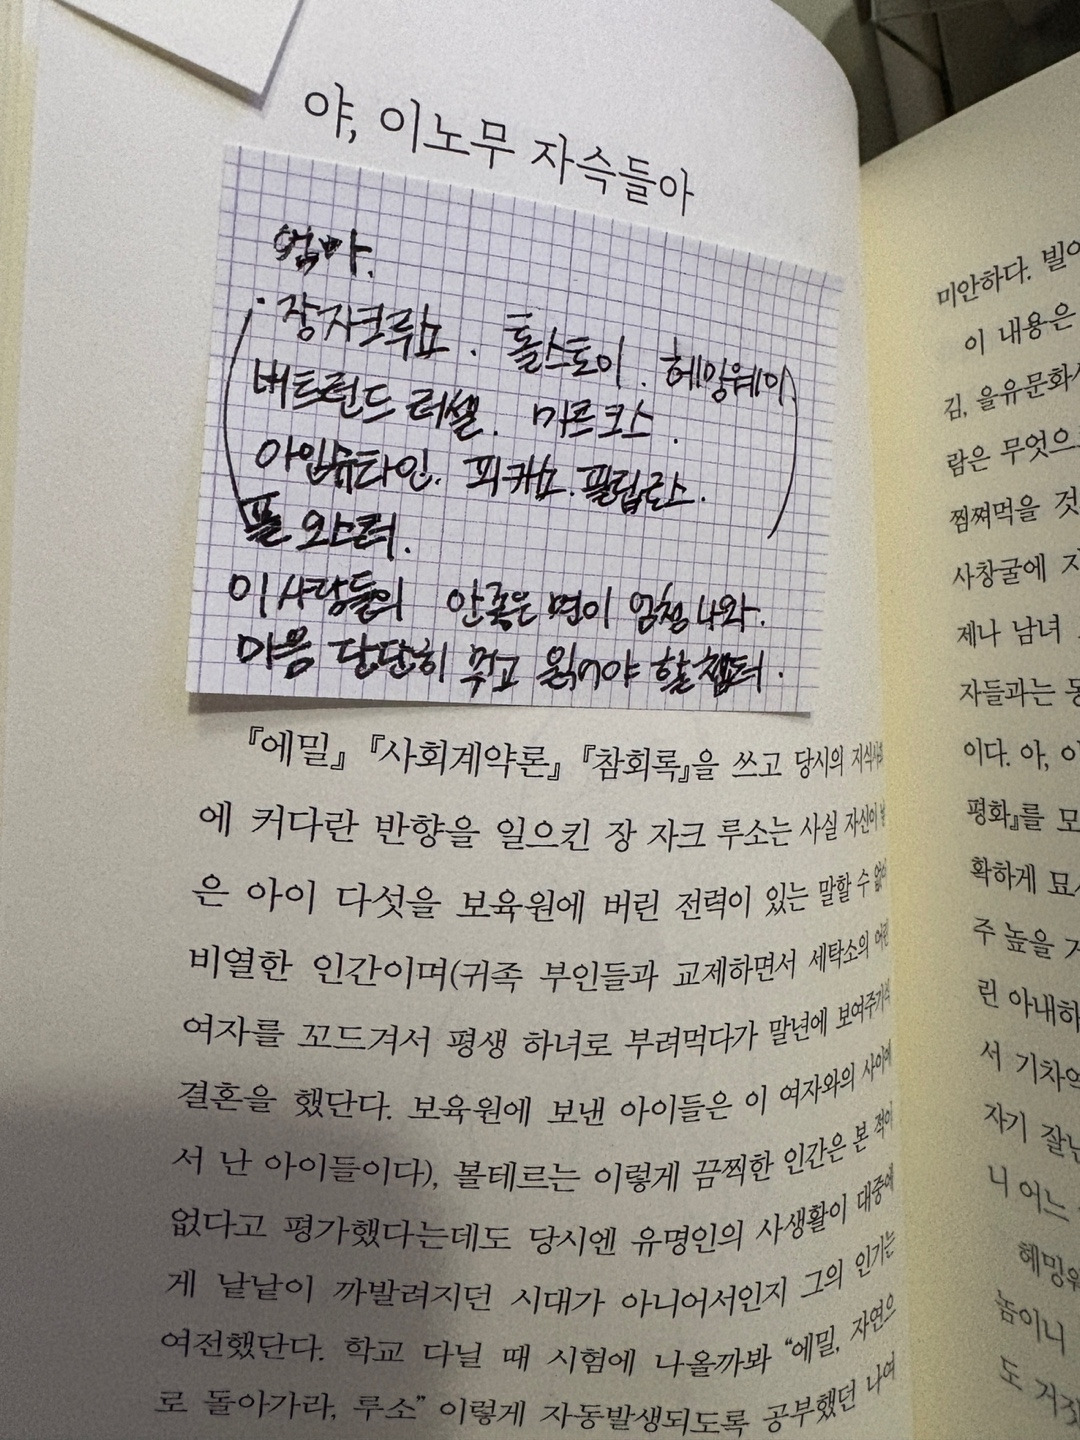 야, 이노무 자슥들아
엄마.
· 장자크루쇼. 톨스토이. 헤밍웨이.
버트런드 러셀. 마르크스.
아인슈타인. 피카쇼. 필립로스.
폴 오스터.
이 사람들의 안좋은 면이 엄청 나와.
마음 단단히 먹고 읽어야 할 챕터.
『에밀』 『사회계약론』 『참회록』을 쓰고 당시의
에 커다란 반향을 일으킨 장 자크 루소는 사실 자신이
은 아이 다섯을 보육원에 버린 전력이 있는 말할 수
비열한 인간이며(귀족 부인들과 교제하면서 세탁소의 어린
여자를 꼬드겨서 평생 하녀로 부려먹다가 말년에
결혼을 했단다. 보육원에 보낸 아이들은 이 여자와의 사이에
서 난 아이들이다), 볼테르는 이렇게 끔찍한 인간은 본 적이
없다고 평가했다는데도 당시엔 유명인의 사생활이 대중에
게 낱낱이 까발려지던 시대가 아니어서인지 그의 인기는
여전했단다. 학교 다닐 때 시험에 나올까봐 “에밀, 자연으
로 돌아가라, 루소” 이렇게 자동발생되도록 공부했던 나여
미안하다.
이 내용은
김, 을유문화
람은 무엇으
찜쪄먹을 것
사창굴에
제나 남녀
자들과는
이다. 아,
평화』를
확하게
주 높을
린 아내하
서 기차역
자기
니 어느
헤밍웨
놈이니
도